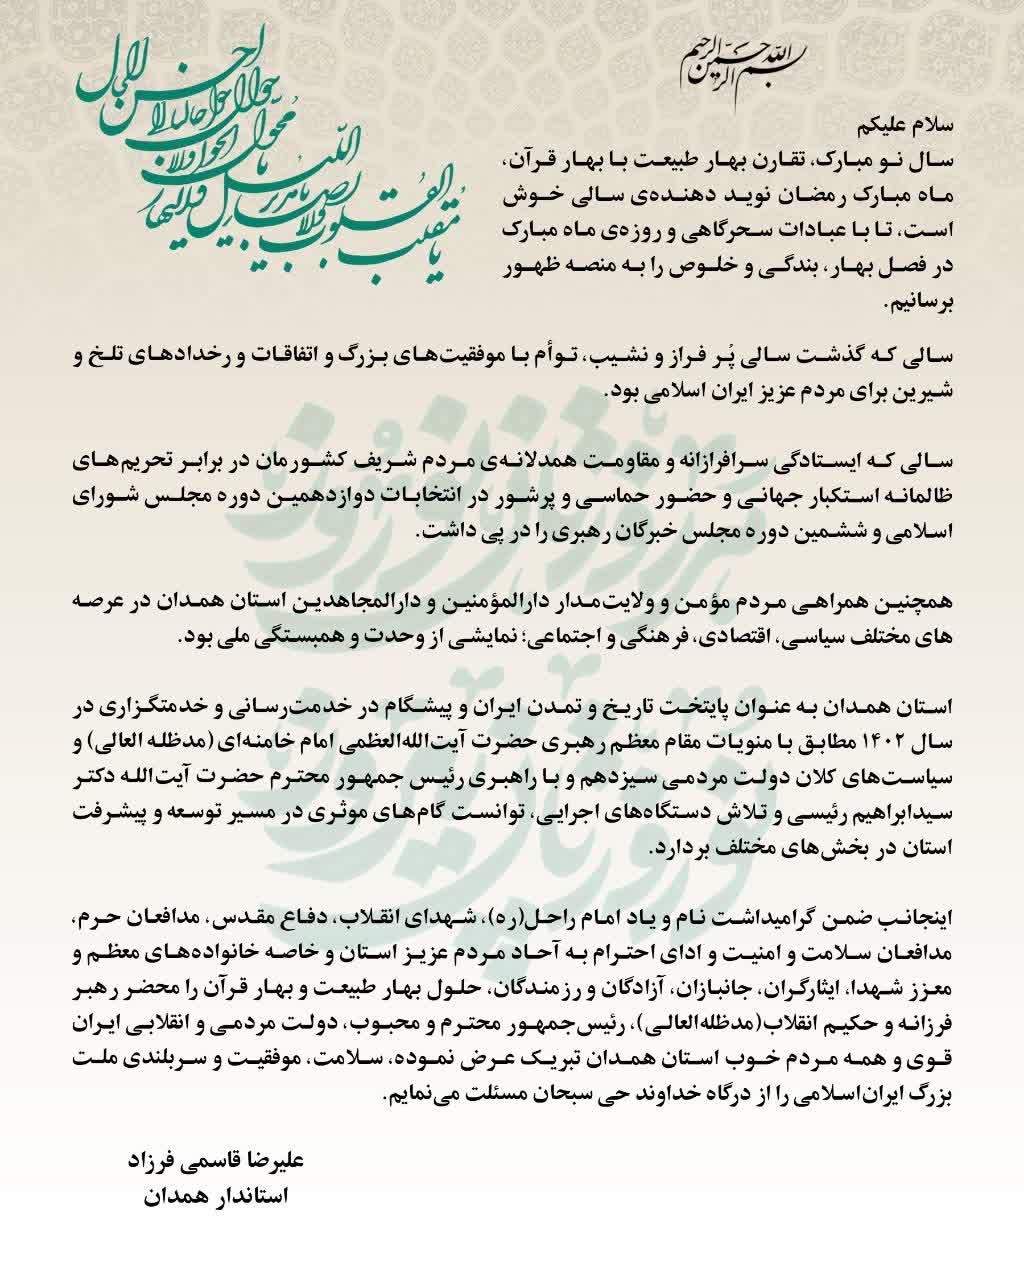 بسم الله الرحمن الرحیم
یا مقلب القلوب و الابصار
یا مدبر اللیل و النهار
یا محول الحول و الاحوال
حول حالنا الی احسن الحال
سلام علیکم
سال نو مبارک، تقارن بهار طبیعت با بهار قرآن،
ماه مبارک رمضان نوید دهنده‌ی سالی خوش
است، تا با عبادات سحرگاهی و روزه‌ی ماه مبارک
در فصل بهار، بندگی و خلوص را به منصه ظهور
برسانیم.
سالی که گذشت سالی پُر فراز و نشیب، توأم با موفقیت‌های بزرگ و اتفاقات و رخدادهای تلخ و
شیرین برای مردم عزیز ایران اسلامی بود.
سالی که ایستادگی سرافرازانه و مقاومت همدلانه‌ی مردم شریف کشورمان در برابر تحریم‌های
ظالمانه استکبار جهانی و حضور حماسی و پرشور در انتخابات دوازدهمین دوره مجلس شورای
اسلامی و ششمین دوره مجلس خبرگان رهبری را در پی داشت.
همچنین همراهی مردم مؤمن و ولایت‌مدار دارالمؤمنین و دارالمجاهدین استان همدان در عرصه
های مختلف سیاسی، اقتصادی، فرهنگی و اجتماعی؛ نمایشی از وحدت و همبستگی ملی بود.
استان همدان به عنوان پایتخت تاریخ و تمدن ایران و پیشگام در خدمت‌رسانی و خدمتگزاری در
سال ۱۴۰۲ مطابق با منویات مقام معظم رهبری حضرت آیت‌الله‌العظمی امام خامنه‌ای (مدظله العالی) و
سیاست‌های کلان دولت مردمی سیزدهم و با راهبری رئیس جمهور محترم حضرت آیت‌الله دکتر
سیدابراهیم رئیسی و تلاش دستگاه‌های اجرایی، توانست گام‌های موثری در مسیر توسعه و پیشرفت
استان در بخش‌های مختلف بردارد.
اینجانب ضمن گرامیداشت نام و یاد امام راحل(ره)، شهدای انقلاب، دفاع مقدس، مدافعان حرم،
مدافعان سلامت و امنیت و ادای احترام به آحاد مردم عزیز استان و خاصه خانواده‌های معظم و
معزز شهدا، ایثارگران، جانبازان، آزادگان و رزمندگان، حلول بهار طبیعت و بهار قرآن را محضر رهبر
فرزانه و حکیم انقلاب(مدظله‌العالی)، رئیس‌جمهور محترم و محبوب، دولت مردمی و انقلابی ایران
قوی و همه مردم خوب استان همدان تبریک عرض نموده، سلامت، موفقیت و سربلندی ملت
بزرگ ایران‌اسلامی را از درگاه خداوند حی سبحان مسئلت می‌نمایم.
علیرضا قاسمی فرزاد
استاندار همدان